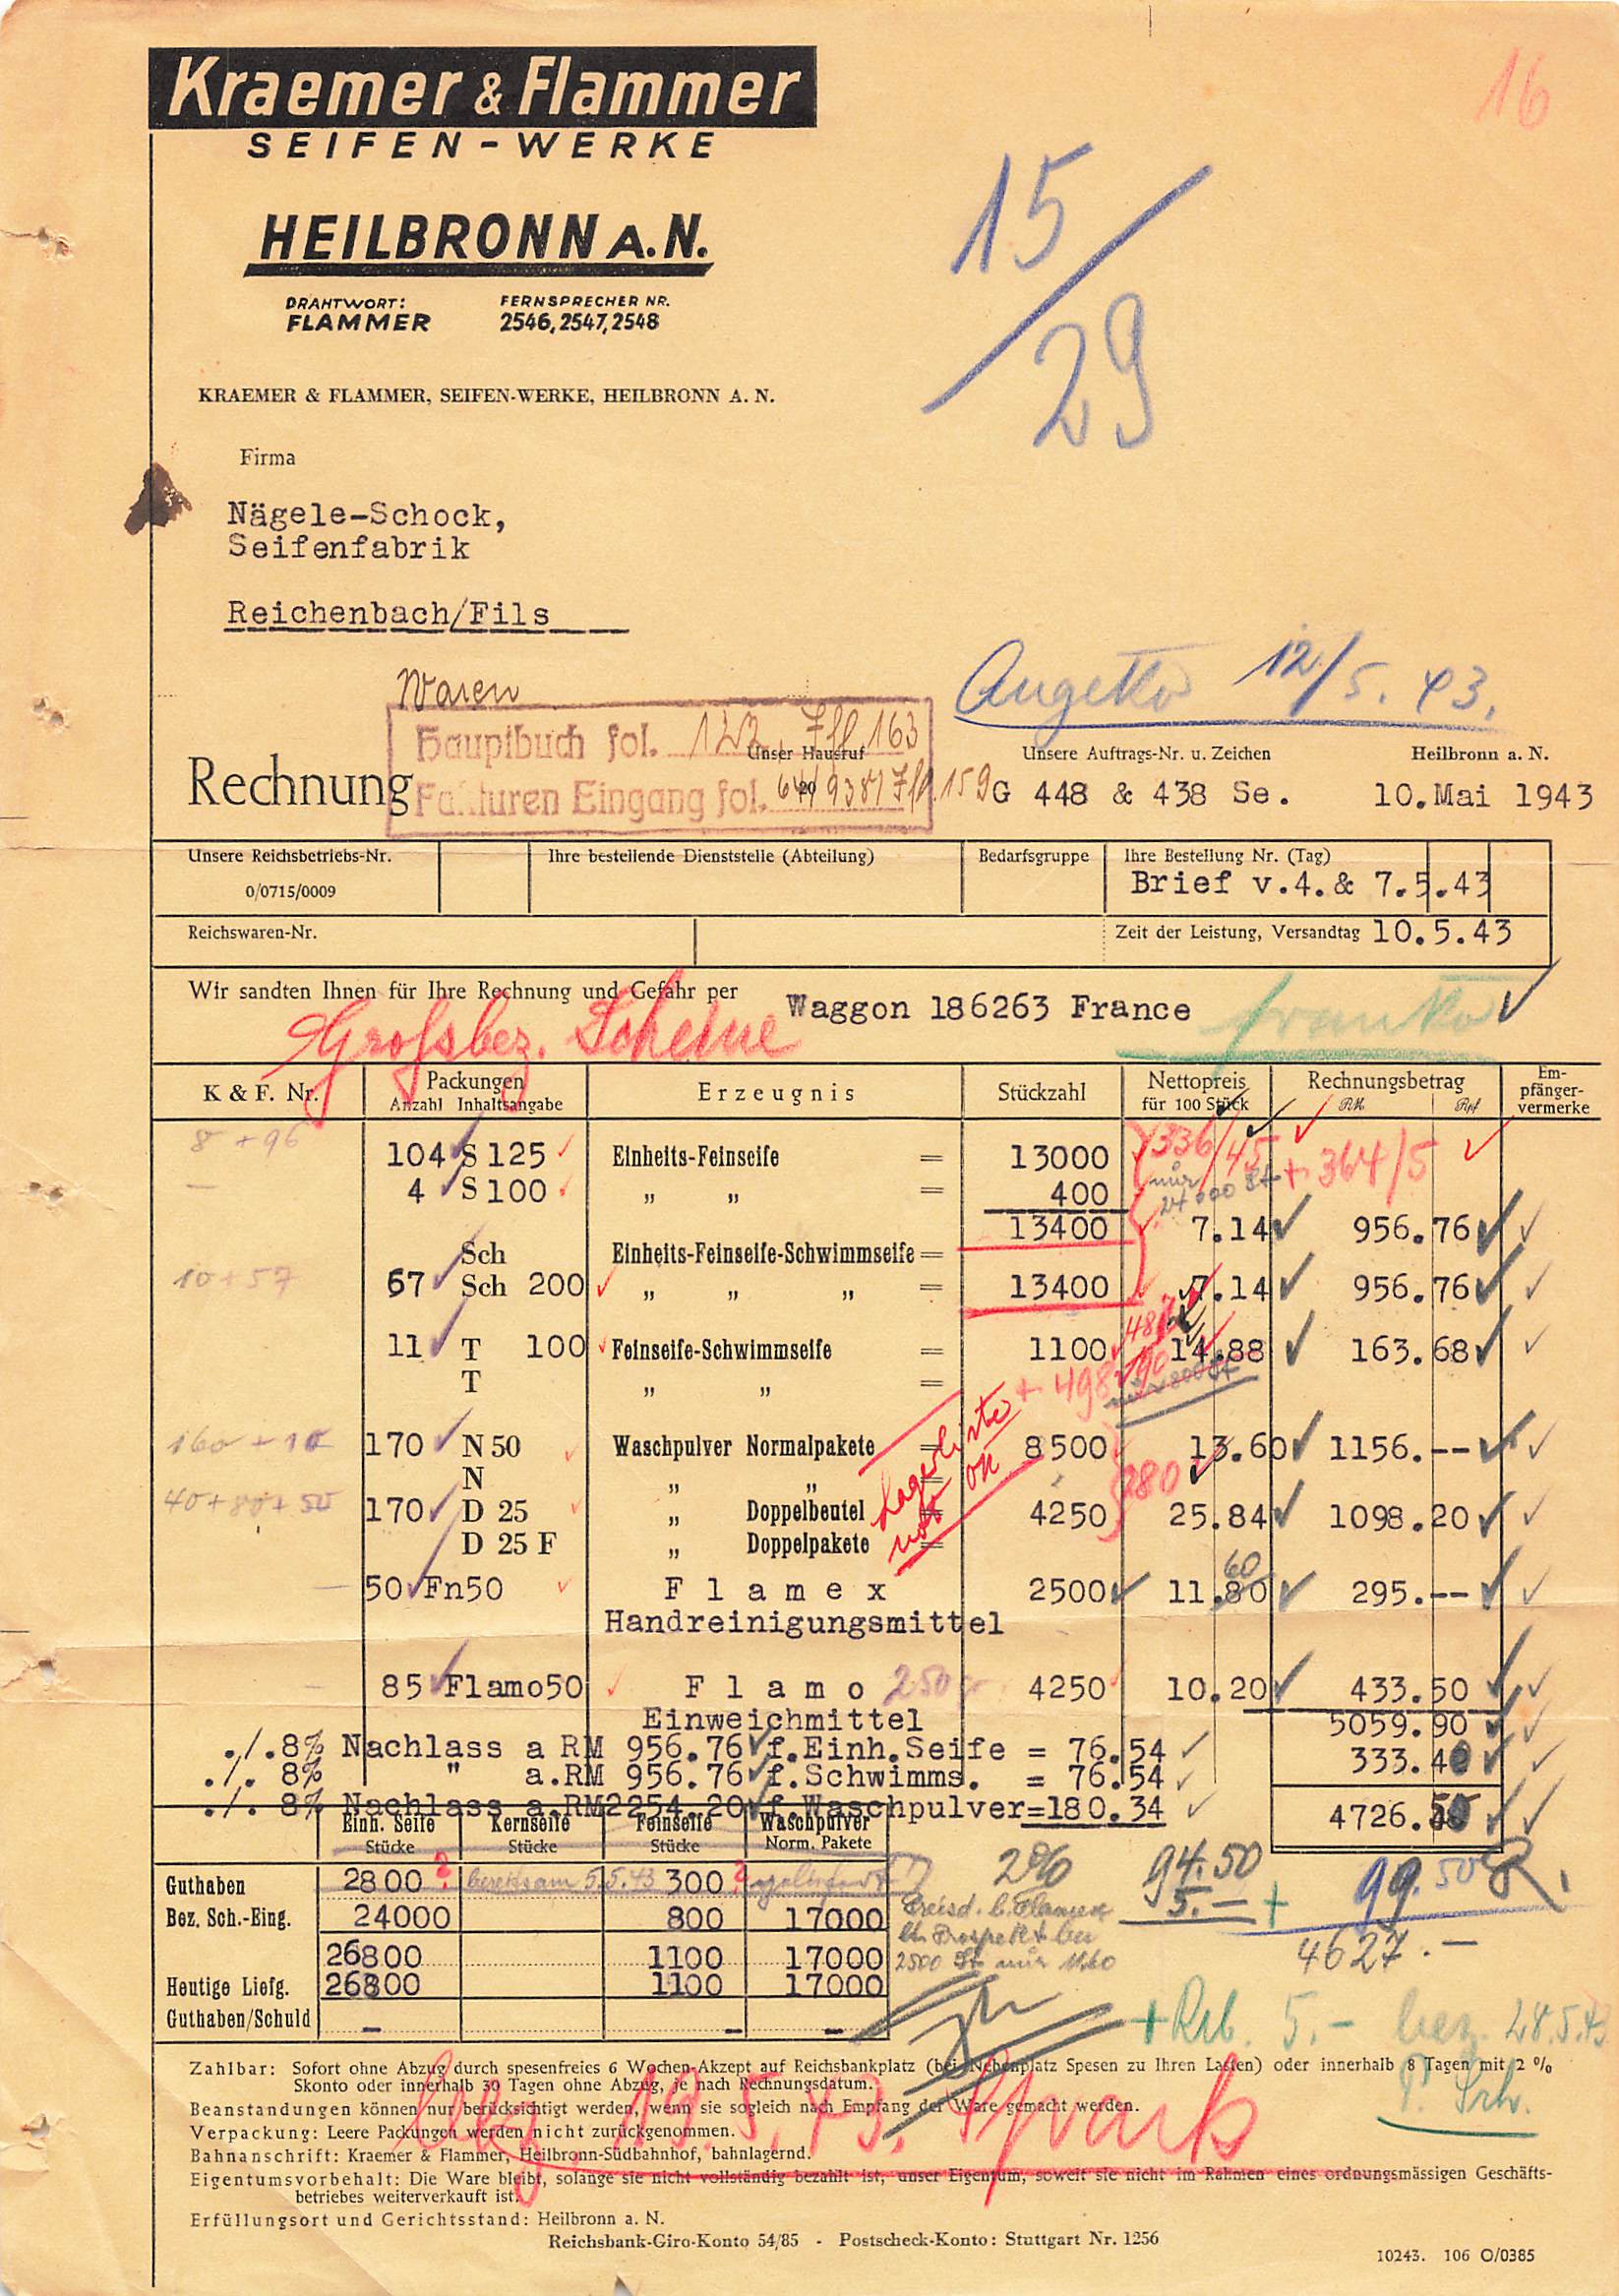 16
Kraemer & Flammer
SEIFEN-WERKE
HEILBRONN A.N.
DRAHTWORT: FERNSPRECHER NR.
FLAMMER 2546, 2547, 2548
15/29
KRAEMER & FLAMMER, SEIFEN-WERKE, HEILBRONN A. N.
Firma
Nägele-Schock,
Seifenfabrik
Reichenbach/Fils
Waren
12/5. 43.
Hauptbuch fol. 122 163
Unser Hausruf Unsere Auftrags-Nr. u. Zeichen Heilbronn a. N.
Rechnung Fakturen Eingang fol. 159 G 448 & 438 Se. 10.Mai 1943
Unsere Reichsbetriebs-Nr. Ihre bestellende Dienststelle (Abteilung) Bedarfsgruppe Ihre Bestellung Nr. (Tag)
0/0715/0009 Brief v.4.& 7.5.43
Reichswaren-Nr. Zeit der Leistung, Versandtag 10.5.43
Wir sandten Ihnen für Ihre Rechnung und Gefahr per Waggon 186263 France franko
Grossbez. Scheine
K. & F. Nr. Packungen Anzahl Inhaltsangabe Erzeugnis Stückzahl Nettopreis für 100 Stück Rechnungsbetrag RM Rpf Empfänger-vermerke
8 + 96 104 S 125 Einheits-Feinseife = 13000 336/45 + 364/5
— 4 S 100 „ „ = 400 nur 24000 St
13400 7.14 956.76
Sch Einheits-Feinseife-Schwimmseife =
10 + 57 67 Sch 200 „ „ „ = 13400 7.14 956.76
11 T 100 Feinseife-Schwimmseife = 1100 14.88 163.68
T „ „ = + 498/90
160 + 10 170 N 50 Waschpulver Normalpakete = 8500 13.60 1156.--
N „ „ Lagerliste
40 + 80 + 50 170 D 25 „ Doppelbeutel = 4250 280 25.84 1098.20
D 25 F „ Doppelpakete =
60
50 Fn50 Flamex 2500 11.80 295.--
Handreinigungsmittel
85 Flamo50 Flamo 250 gr 4250 10.20 433.50
Einweichmittel 5059.90
./.8% Nachlass a RM 956.76 f.Einh.Seife = 76.54 333.40
./. 8% " a.RM 956.76 f.Schwimms. = 76.54
./. 8% Nachlass a.RM2254.20 f.Waschpulver=180.34 4726.50
Einh. Seife Stücke Kernseife Stücke Feinseife Stücke Waschpulver Norm. Pakete
2% 94.50 99.50
Guthaben 2800 5.5.43 300 5.— +
Bez. Sch.-Eing. 24000 800 17000 Preisd. b. Flamex
lt. Prospekt bei
26800 1100 17000 2500 St nur 11.60 4627.—
Heutige Liefg. 26800 1100 17000
Guthaben/Schuld — — —
+ Rb. 5.- bez. 28.5.43
Zahlbar: Sofort ohne Abzug durch spesenfreies 6 Wochen-Akzept auf Reichsbankplatz (bei Nebenplatz Spesen zu Ihren Lasten) oder innerhalb 8 Tagen mit 2 %
Skonto oder innerhalb 30 Tagen ohne Abzug, je nach Rechnungsdatum.
Beanstandungen können nur berücksichtigt werden, wenn sie sogleich nach Empfang der Ware gemacht werden.
Verpackung: Leere Packungen werden nicht zurückgenommen.
19.5.43.
Bahnanschrift: Kraemer & Flammer, Heilbronn-Südbahnhof, bahnlagernd.
Eigentumsvorbehalt: Die Ware bleibt, solange sie nicht vollständig bezahlt ist, unser Eigentum, soweit sie nicht im Rahmen eines ordnungsmässigen Geschäfts-
betriebes weiterverkauft ist.
Erfüllungsort und Gerichtsstand: Heilbronn a. N.
Reichsbank-Giro-Konto 54/85 - Postscheck-Konto: Stuttgart Nr. 1256
10243. 106 O/0385